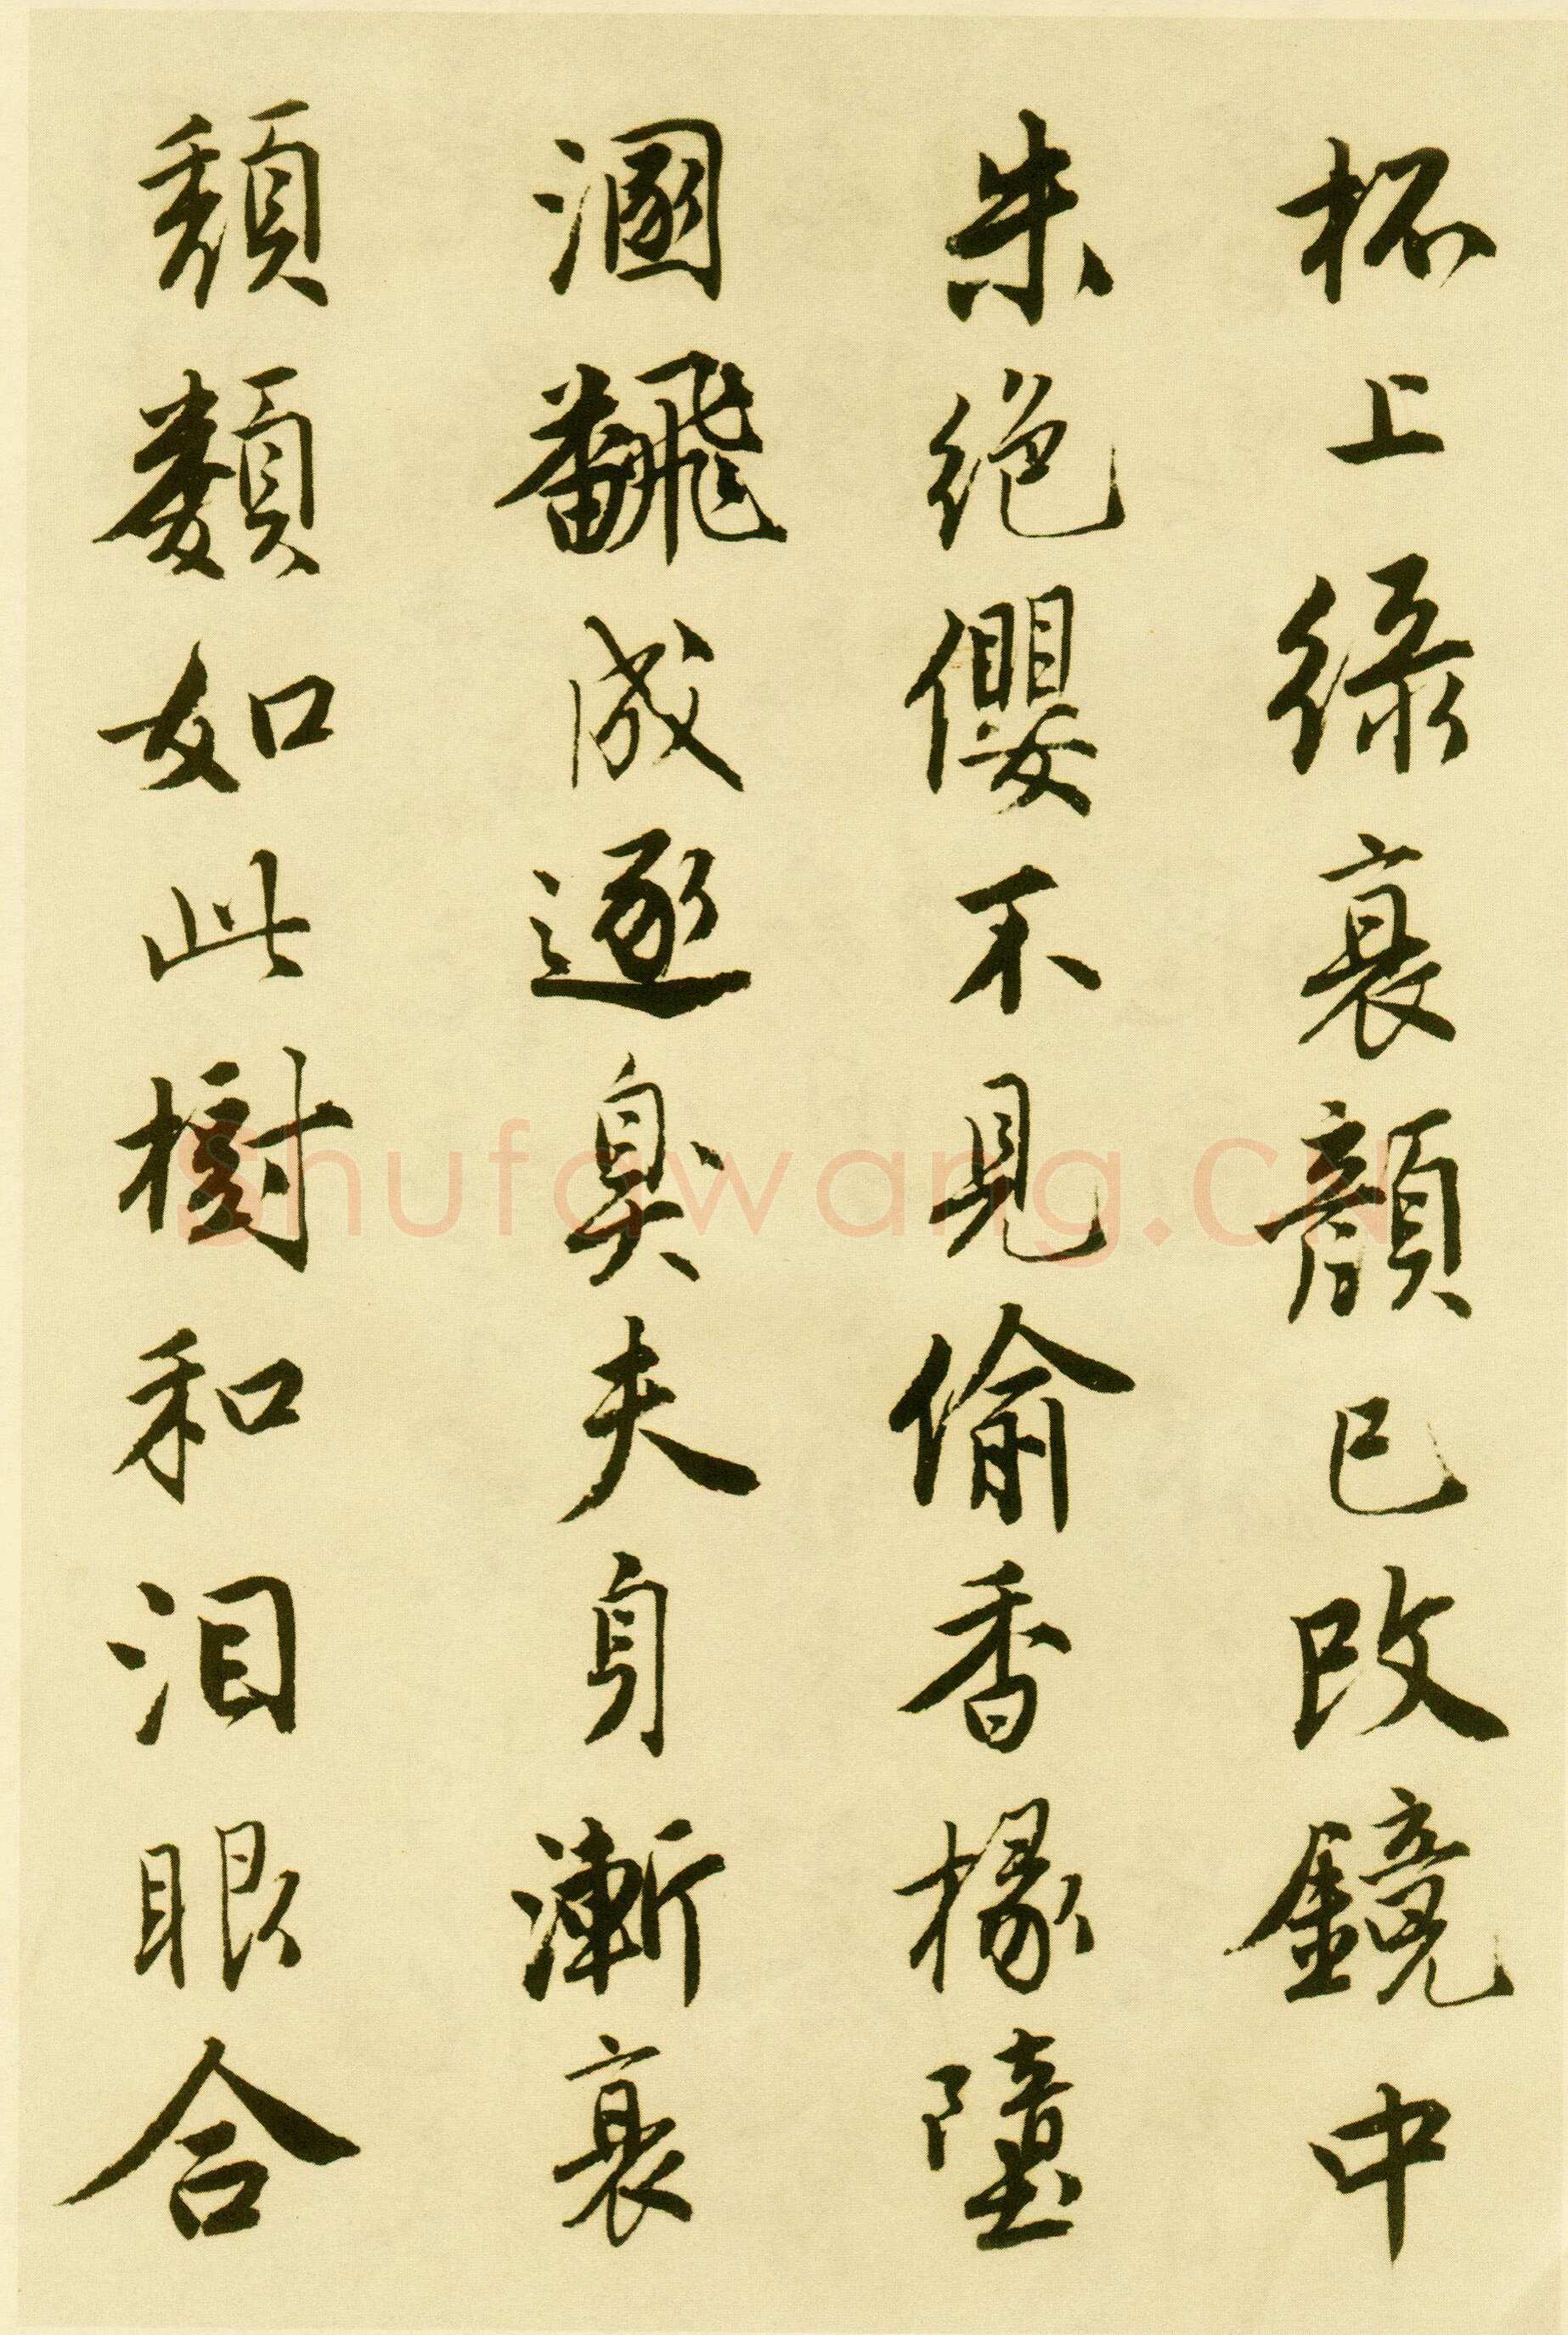 杯上綠衰顏已改鏡中
朱絕纓不見偷香椽墮
溷飜成逐臭夫身漸衰
頹類如此樹和泪眼合
Shufawang.CN